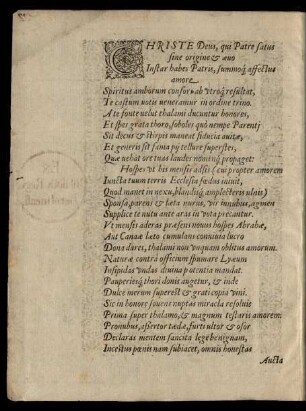 CHRISTE Deus, qui Patre satus
sine origine & ævo
Instar habes Patris, summoq; affectus
amore
Spiritus amborum consors ab utroq; resultat,
Te castum votis veneramur in ordine trino.
A te fonte velut thalami ducuntur honores,
Et spes grata thoro, soboles quò nempe Parenti
Sit decus & stirpis maneat fiducia avitæ,
Et generis sit fama in tellure superstes,
Quæ nebat ore tuas laudes moremq; propaget:
Hospes ut his mensis adsis (cui propter amorem
Iuncta tuum terris Ecclesia fœdus inivit,
Quod manet in nexu, blandisq; amplecteris ulnis)
Sponsa, parens & læta nurus, vir innubus, agnum
Supplice te nutu ante aras in vota precantur.
Ut mensis aderas præsens novus hospes Abrahæ,
Aut Canaæ læto cumulans convivia lucro
Dona dires, thalami non unquam oblitus amorum.
Naturæ contra officium spumare Lyæum
Insipidas undas divina potentia mandat.
Pauperiesq; thori donis augetur, & inde
Dulce merum superest & grati copia vini.
Sic in honore fovens nuptas miracla resolvis
Prima super thalamo, & magnum testaris amorem
Pronubus, assertor tædæ, furti ultor & osor
Declaras mentem sancita lege benignam,
Incestus pœnis nam subiacet, omnis honestas
Aucta